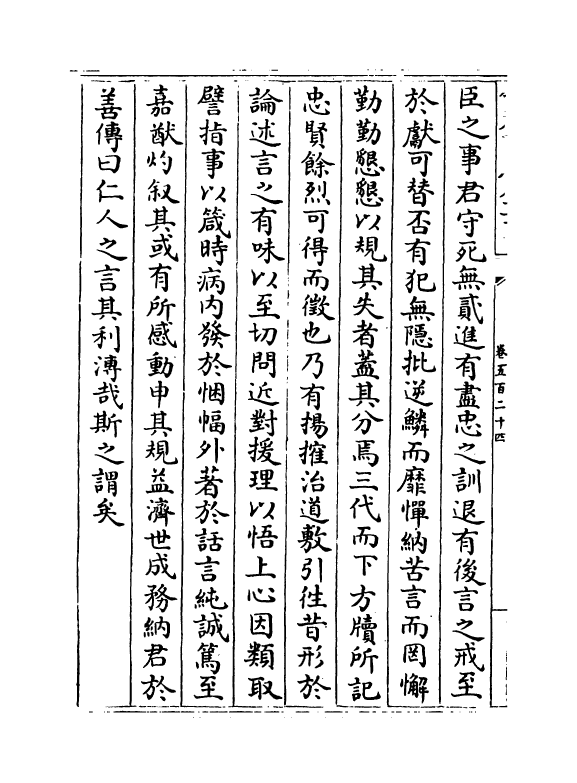 臣之事君守死無貳進有盡忠之訓退有後言之戒至
於獻可替否有犯無隱批逆鱗而靡憚納苦言而罔懈
勤勤懇懇以規其失者蓋其分焉三代而下方牘所記
忠賢餘烈可得而徵也乃有揚搉治道敷引徃昔形於
論述言之有味以至切問近對援理以悟上心因類取
譬指事以箴時病内發於悃愊外著於話言純誠篤至
嘉猷灼叙其或有所感動申其規益濟世成務納君於
善傳曰仁人之言其利溥哉斯之謂矣
卷五百二十四